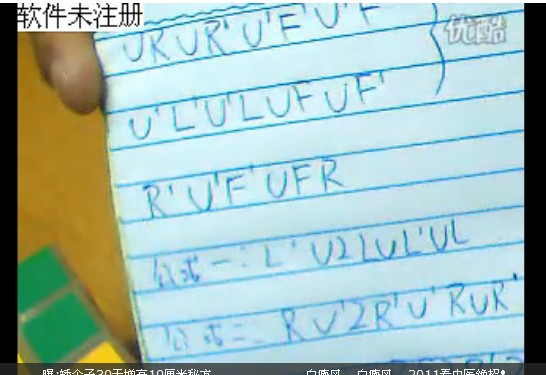 软件未注册
优酷
URUR'U'F'U'F
U'L'U'LUFUF'
R'U'F'UFR
公式一:L'U2LUL'UL
公式二:RU'2R'U'RUR'
曝:矮个子30天增高10厘米秘方
白癜风 白癜风 2011看中医绝招!